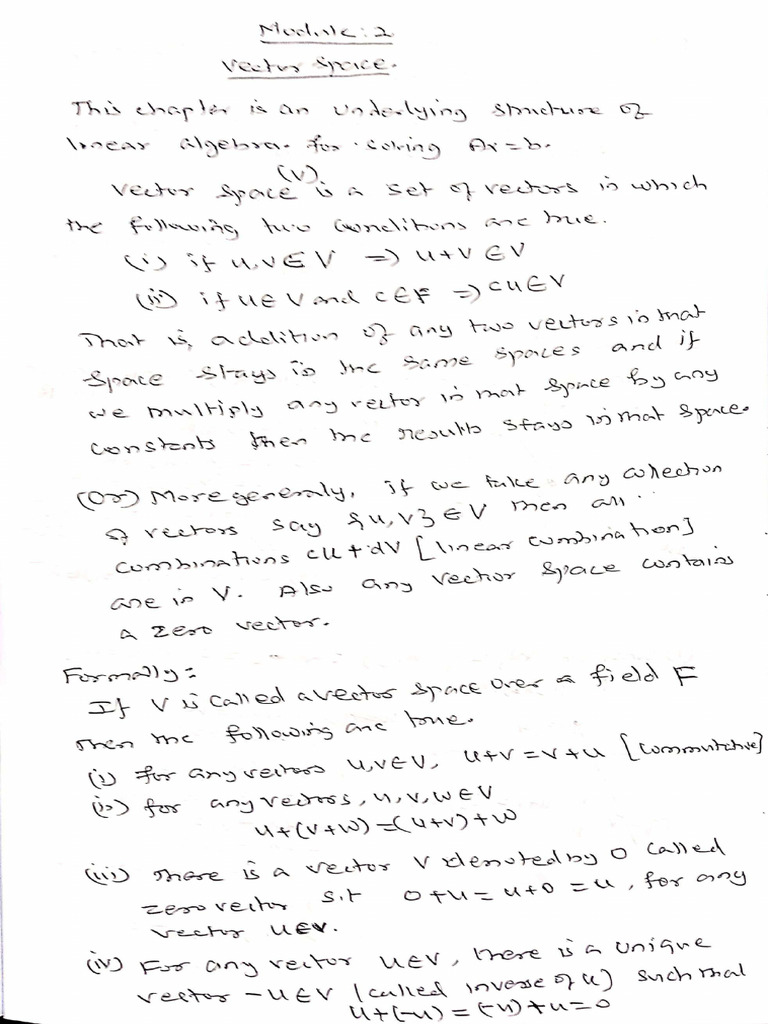 Module: 2
Vector Space.
This chapter is an underlying structure of
linear algebra. for solving Ax=b.
(V)
Vector space is a set of vectors in which
the following two conditions are true.
(i) if u,v∈V ⇒ u+v∈V
(ii) if u∈V and c∈F ⇒ cu∈V
That is, addition of any two vectors in that
space stays in the same spaces and if
we multiply any vector in that space by any
constants then the results stays in that space.
(Or) More generally, if we take any collection
of vectors say {u,v}∈V then all
combinations cu+dv [linear combination]
are in V. Also any vector space contains
a zero vector.
Formally:
If V is called a vector space over a field F
then the following are true.
(i) for any vectors u,v∈V, u+v=v+u [commutative]
(ii) for any vectors, u,v,w∈V
u+(v+w)=(u+v)+w
(iii) There is a vector V denoted by 0 called
zero vector s.t 0+u=u+0=u, for any
vector u∈V.
(iv) For any vector u∈V, there is a unique
vector -u∈V (called inverse of u) such that
u+(-u)=(-u)+u=0